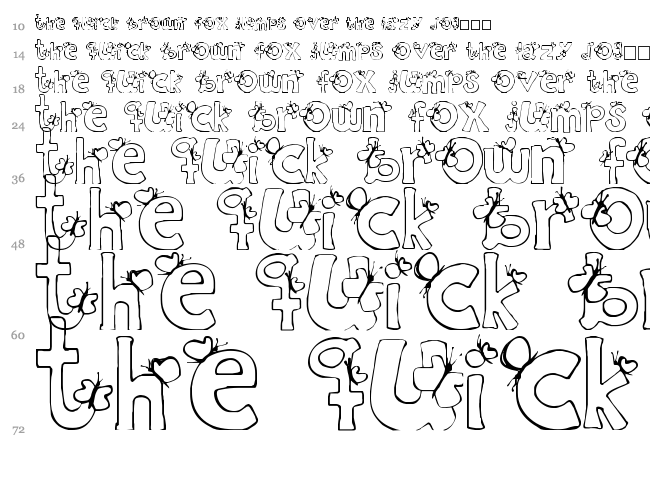 10 the quick brown fox jumps over the lazy dog□□□
14 the quick brown fox jumps over the lazy dog□□
18 the quick brown fox jumps over the
24 the quick brown fox jumps
36 the quick brown fo
48 the quick bro
60 the quick br
72 the quick